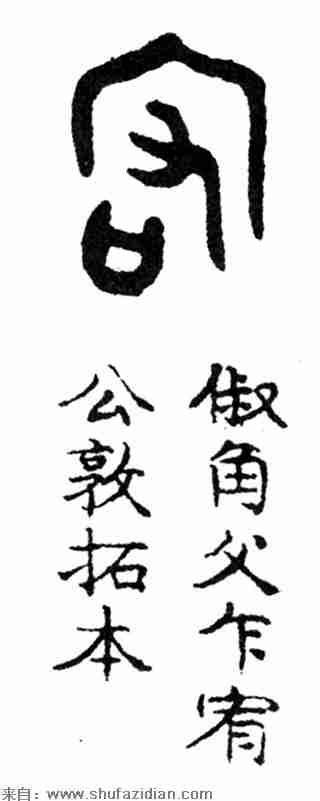 俶角父乍宥
公敦拓本
来自：www.shufazidian.com